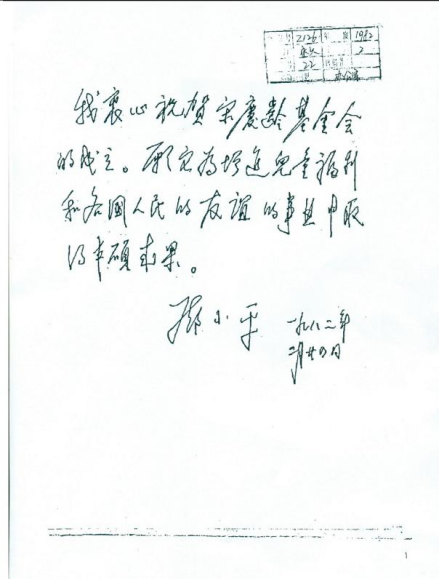 2126 1982
2
22
我衷心祝贺宋庆龄基金会
的成立。愿它为增进儿童福利
和各国人民的友谊的事业中取
得丰硕成果。
邓小平 一九八二年
二月廿四日
1